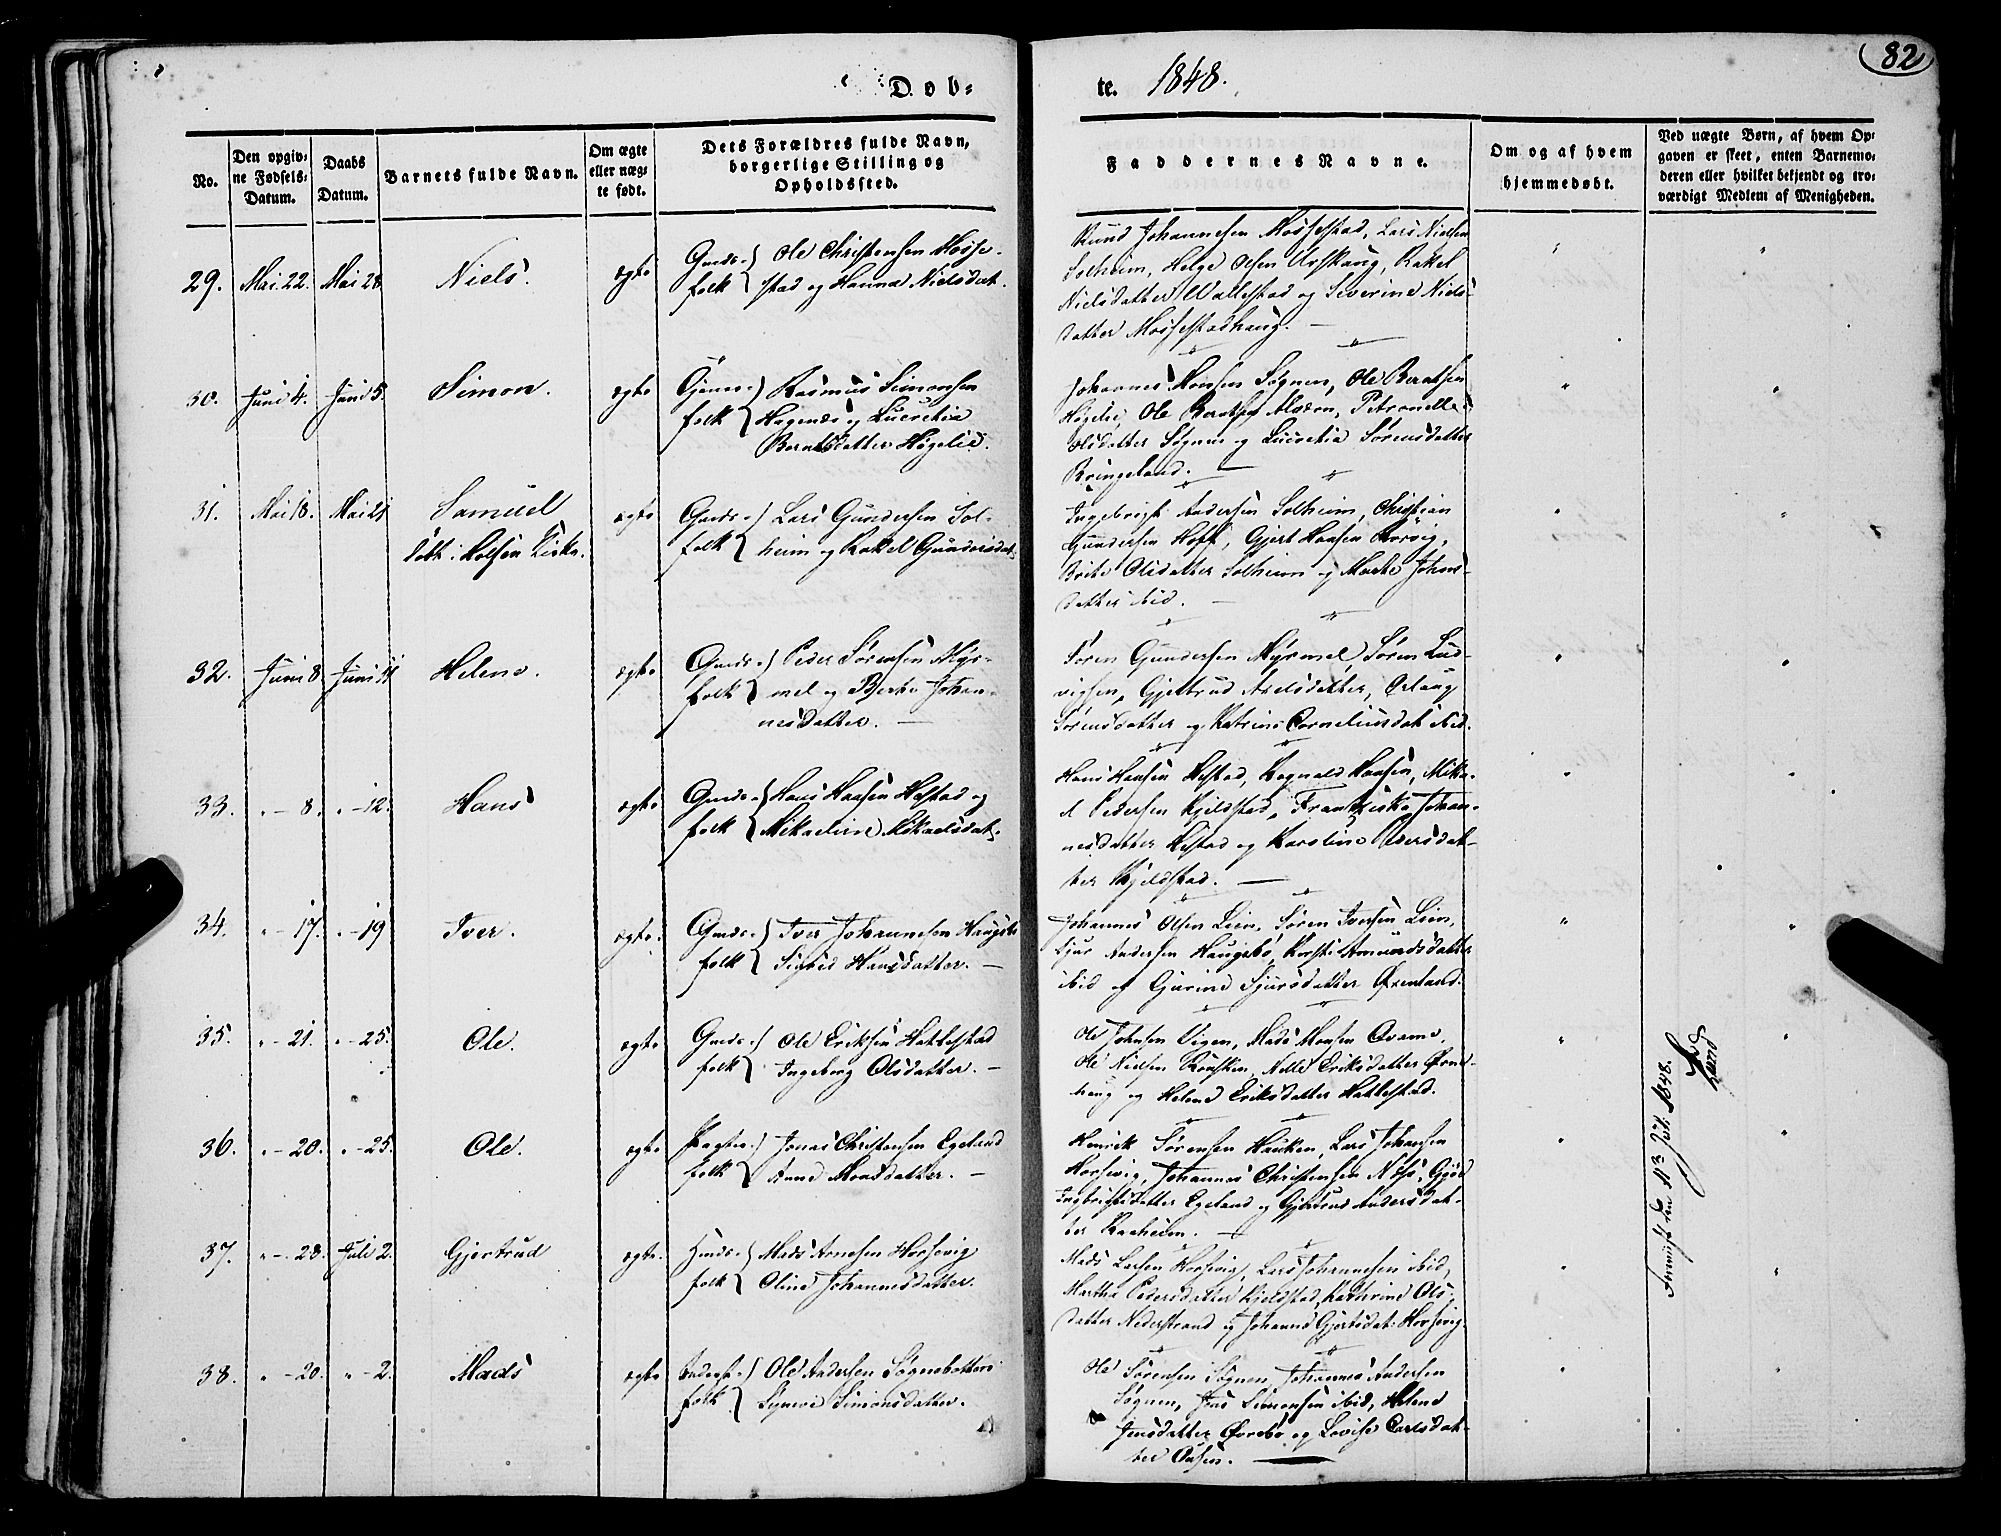 82
Døb-
te. 1848.
No.
Den opgiv-
ne Fødsels-
Datum.
Daabs
Datum.
Barnets fulde Navn.
Om ægte
eller uæg-
te født.
Dets Forældres fulde Navn,
borgerlige Stilling og
Opholdssted.
Faddernes Navne.
Om og af hvem
hjemmedøbt.
Ved uægte Børn, af hvem Op-
gaven er skeet, enten Barnemo-
deren eller hvilket bekjendt og tro-
værdigt Medlem af Menigheden.
29. Mai 22. Mai 28 Niels. ægte
Gmds- folk Ole Christensen Mosse-
stad og Hanna Nielsdat.
Knud Johannesen Mossestad, Lars Nielsen
Solheim, Helge Olsen Urskaug, Rakel
Nielsdatter Wallestad og Severine Niels-
datter Mossestadhaug.
30. Juni 4. Juni 5. Simon. ægte
folk Rasmus Simonsen
og Lucretia
Berntsdatter Høgelie.
Johannes Monsen Søgnen, Ole Berntsen
Høgelie, Ole Berntsen Petronelle
Olsdatter Søgnen og Lucretia Sørensdatter
Bringeland.
31. Mai 18. Mai 21 Samuel ægte
døbt i Holsen Kirke.
Gmds- folk Lars Gundersen Sol-
heim og Rakel Gundersdat.
Ingebrigt Andersen Solheim, Christian
Gundersen Hoff, Gjert Hansen
Brite Olsdatter Solheim og Marte Johns-
datter ibid.
32. Juni 8 Juni 11 Helene. ægte
Gmds- folk Peder Sørensen Myr-
mel og Berte Johan-
nesdatter.
Søren Gundersen Myrmel, Søren Lud-
vigsen, Gjertrud Axelsdatter, Orlaug
Sørensdatter og Katrine Corneliusdat ibid.
33. " - 8. " - 12. Hans ægte
Gmds- folk Hans Hansen Hestad og
Mikaeline Mikaelsdat.
Hans Hansen Hestad, Ragnald Hansen, Mika-
el Pedersen Kjeldstad, Frantziska Johan-
nesdatter Hestad og Karoline Pedersdat-
ter Kjeldstad.
34. " - 17. " - 19 Iver. ægte.
Gmds- folk Iver Johannesen Haugsbø
Sigrid Hansdatter.
Johannes Olsen Lien, Søren Iversen Lien,
Sjur Andersen Haugsbø, Kirsti Amundsdatter
ibid og Gurine Sjursdatter Øxenland.
35. " - 21. " - 25. Ole. ægte
Gmds- folk Ole Eriksen Hattestad
Ingeborg Olsdatter.
Ole Johnsen Vigen, Mads Monsen Qvame,
Ole Nielsen Nille Eriksdatter
haug og Helene Eriksdatter Hattestad.
36. " - 20. " - 25. Ole. ægte
folk Jonas Christensen Egeland
Anne Monsdatter.
Henrik Sørensen Hauken, Lars Johansen
Horsevig, Johannes Christensen
Ingbrigtsdatter Egeland og Gjertrud Andersdat-
ter
37. " - 28. Juli 2. Gjertrud ægte.
folk Mads Arnesen Horsevig
Oline Johannesdatter.
Mads Larsen Horsevig, Lars Johannesen ibid,
Marthe Pedersdatter Kjeldstad, Kathrine Ols-
datter Nederstrand og Johanne Gjertsdat: Horsevig.
38. " - 20. " - 2. Mads ægte
folk Ole Andersen Søgnebotten
Synove Simonsdatter.
Ole Sørensen Søgnen, Johannes Andersen
Søgnen, Jens Simonsen ibid, Helene
Jensdatter Øvrebø og Lovise Carlsdat-
ter
den 11te Juli 1848.
Lund